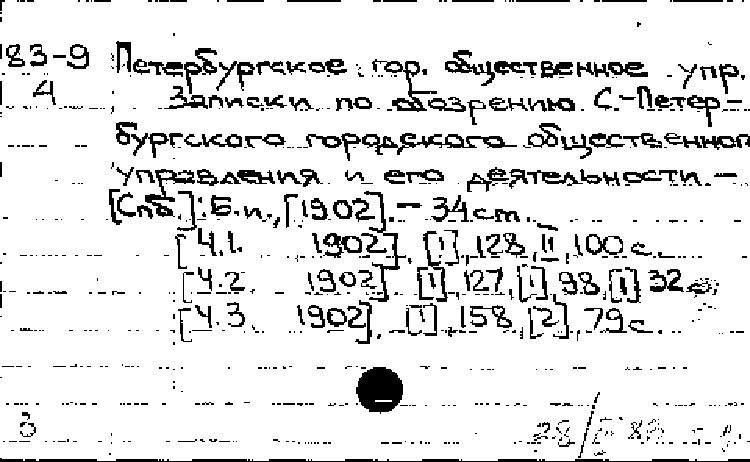 83-9 Петербургское гор. общественное упр.
4 Записки по обозрению С.-Петер-
бургского городского общественного
управления и его деятельности. -
[Спб.]: Б.и., [1902]. - 34 см.
[Ч.1. 1902]. [1], 128, II, 100 с.
[Ч.2. 1902] [1], 127, [1], 98, [1] 32 с.
[Ч.3. 1902]. [1], 158, [2], 79 с.
3
28/